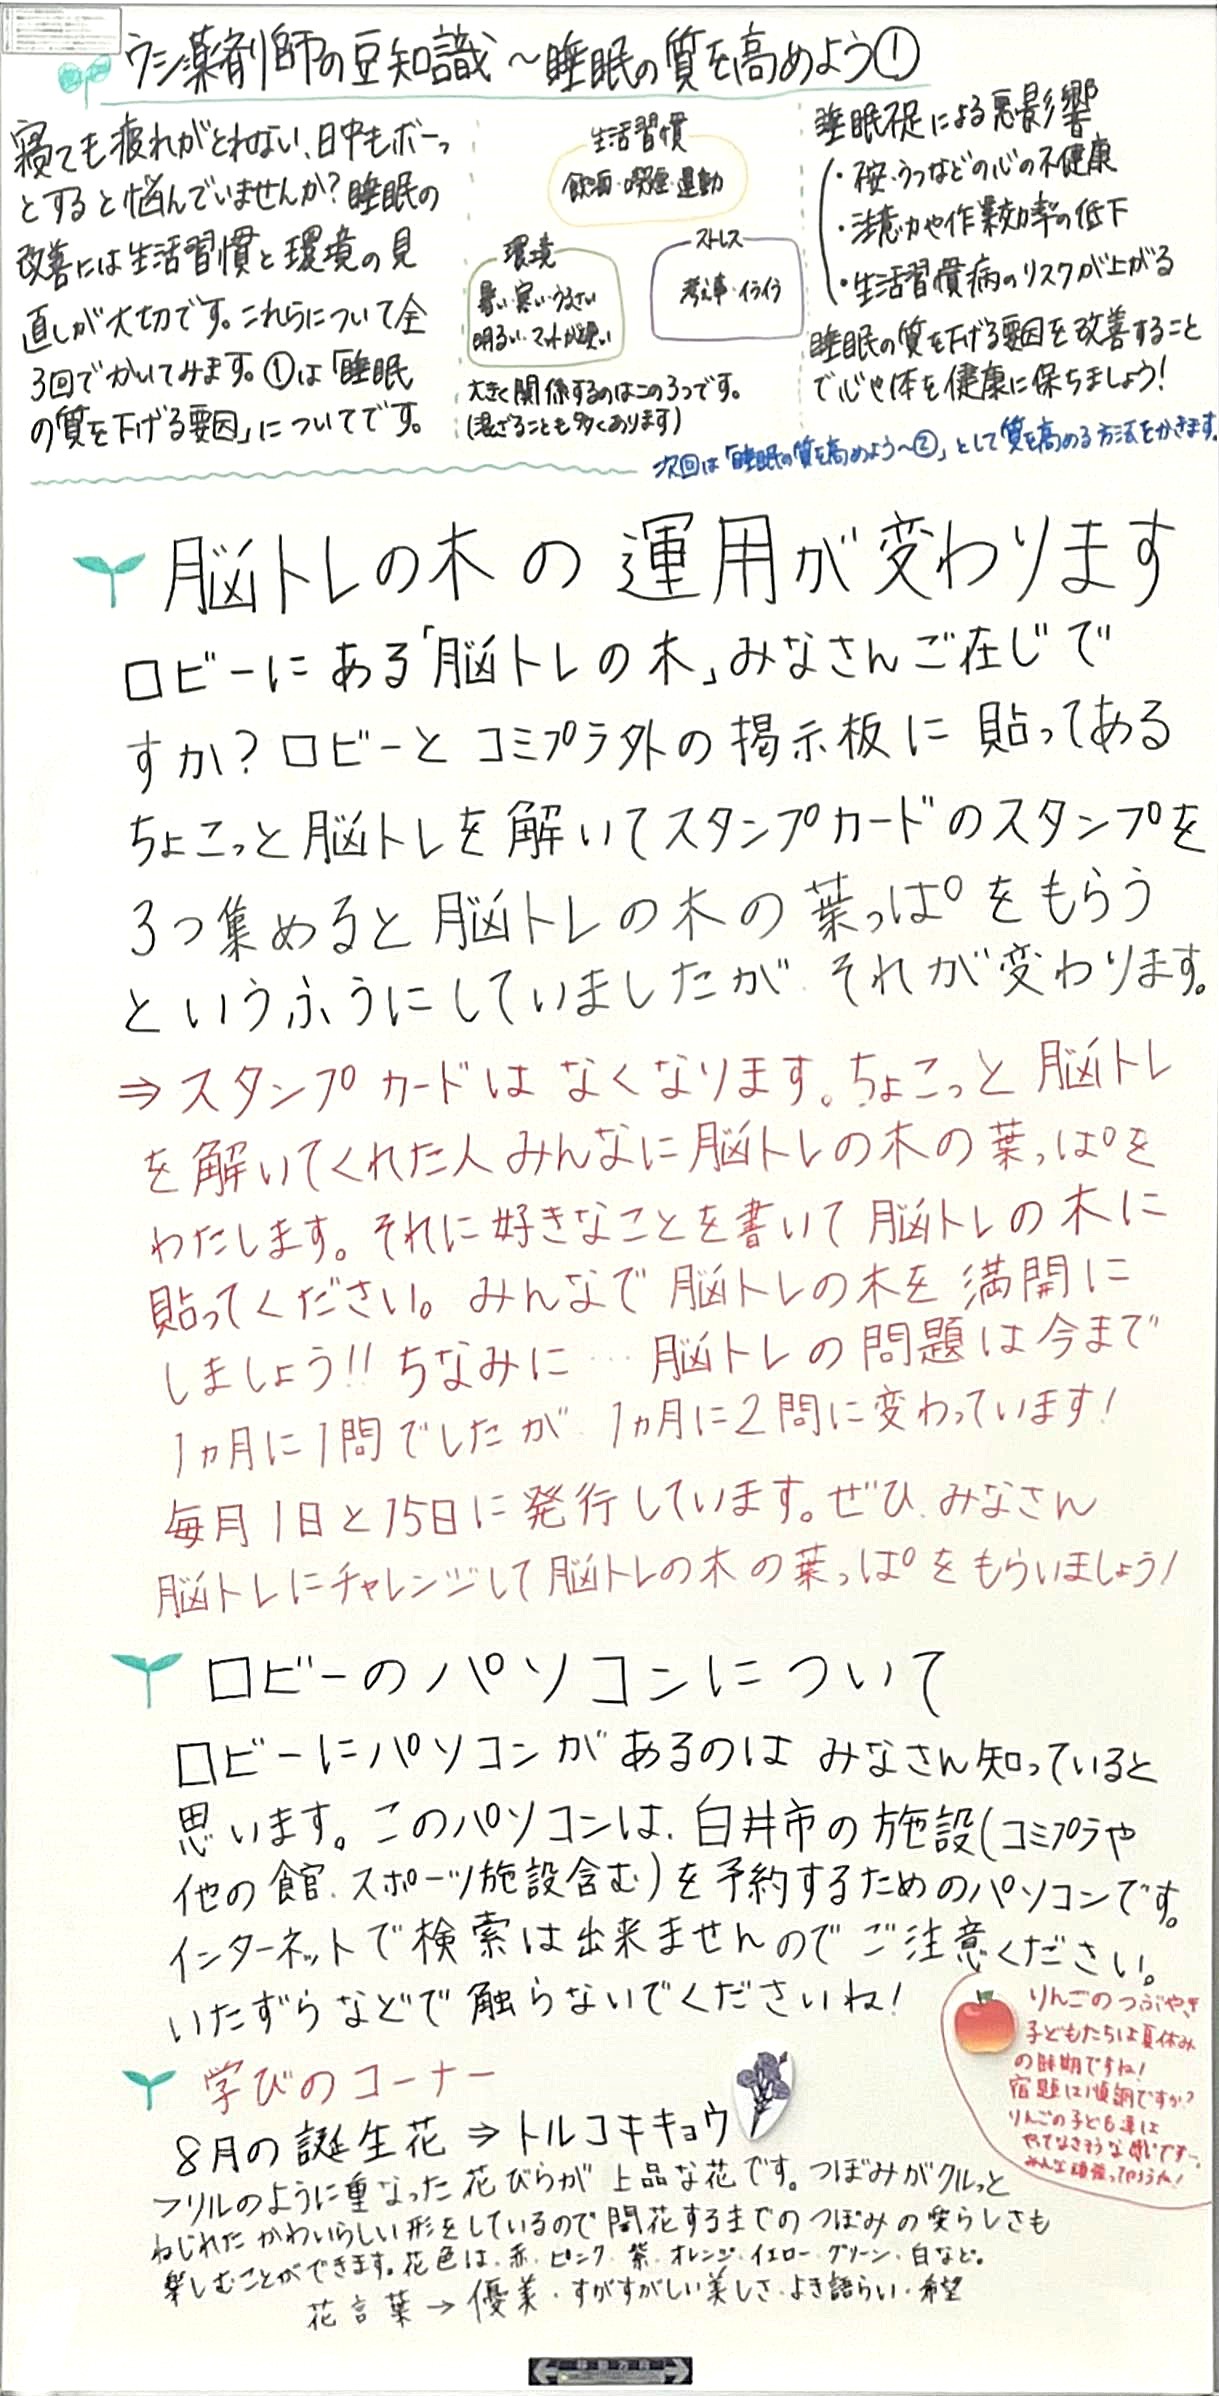 ウシ薬剤師の豆知識〜睡眠の質を高めよう①
寝ても疲れがとれない、日中もボーっ
とすると悩んでいませんか?睡眠の
改善には生活習慣と環境の見
直しが大切です。これらについて全
3回でかいてみます。①は「睡眠
の質を下げる要因」についてです。
生活習慣
飲酒・喫煙・運動
環境
暑い・寒い・うるさい
明るい・マットが硬い
ストレス
考え事・イライラ
大きく関係するのはこの3つです。
(混ざることも多くあります)
睡眠不足による悪影響
・不安・うつなどの心の不健康
・注意力や作業効率の低下
・生活習慣病のリスクが上がる
睡眠の質を下げる要因を改善すること
で心や体を健康に保ちましょう!
次回は「睡眠の質を高めよう〜②」として質を高める方法をかきます。
脳トレの木の運用が変わります
ロビーにある「脳トレの木」みなさんご在じで
すか?ロビーとコミプラ外の掲示板に貼ってある
ちょこっと脳トレを解いてスタンプカードのスタンプを
3つ集めると脳トレの木の葉っぱをもらう
というふうにしていましたが、それが変わります。
⇒スタンプカードはなくなります。ちょこっと脳トレ
を解いてくれた人みんなに脳トレの木の葉っぱを
わたします。それに好きなことを書いて脳トレの木に
貼ってください。みんなで脳トレの木を満開に
しましょう!!ちなみに…脳トレの問題は今まで
1ヵ月に1問でしたが、1ヵ月に2問に変わっています!
毎月1日と15日に発行しています。ぜひ、みなさん
脳トレにチャレンジして脳トレの木の葉っぱをもらいましょう!
ロビーのパソコンについて
ロビーにパソコンがあるのはみなさん知っていると
思います。このパソコンは、白井市の施設(コミプラや
他の館、スポーツ施設含む)を予約するためのパソコンです。
インターネットで検索は出来ませんのでご注意ください。
いたずらなどで触らないでくださいね!
りんごのつぶやき
子どもたちは夏休み
の時期ですね!
宿題は順調ですか?
りんごの子ども達は
やってなさそうな感じです…
みんな頑張ってやろうね!
学びのコーナー
8月の誕生花⇒トルコキキョウ
フリルのように重なった花びらが上品な花です。つぼみがクルっと
ねじれたかわいらしい形をしているので開花するまでのつぼみの愛らしさも
楽しむことができます。花色は、赤・ピンク・紫・オレンジ・イエロー・グリーン・白など。
花言葉→優美・すがすがしい美しさ・よき語らい・希望
移動方向